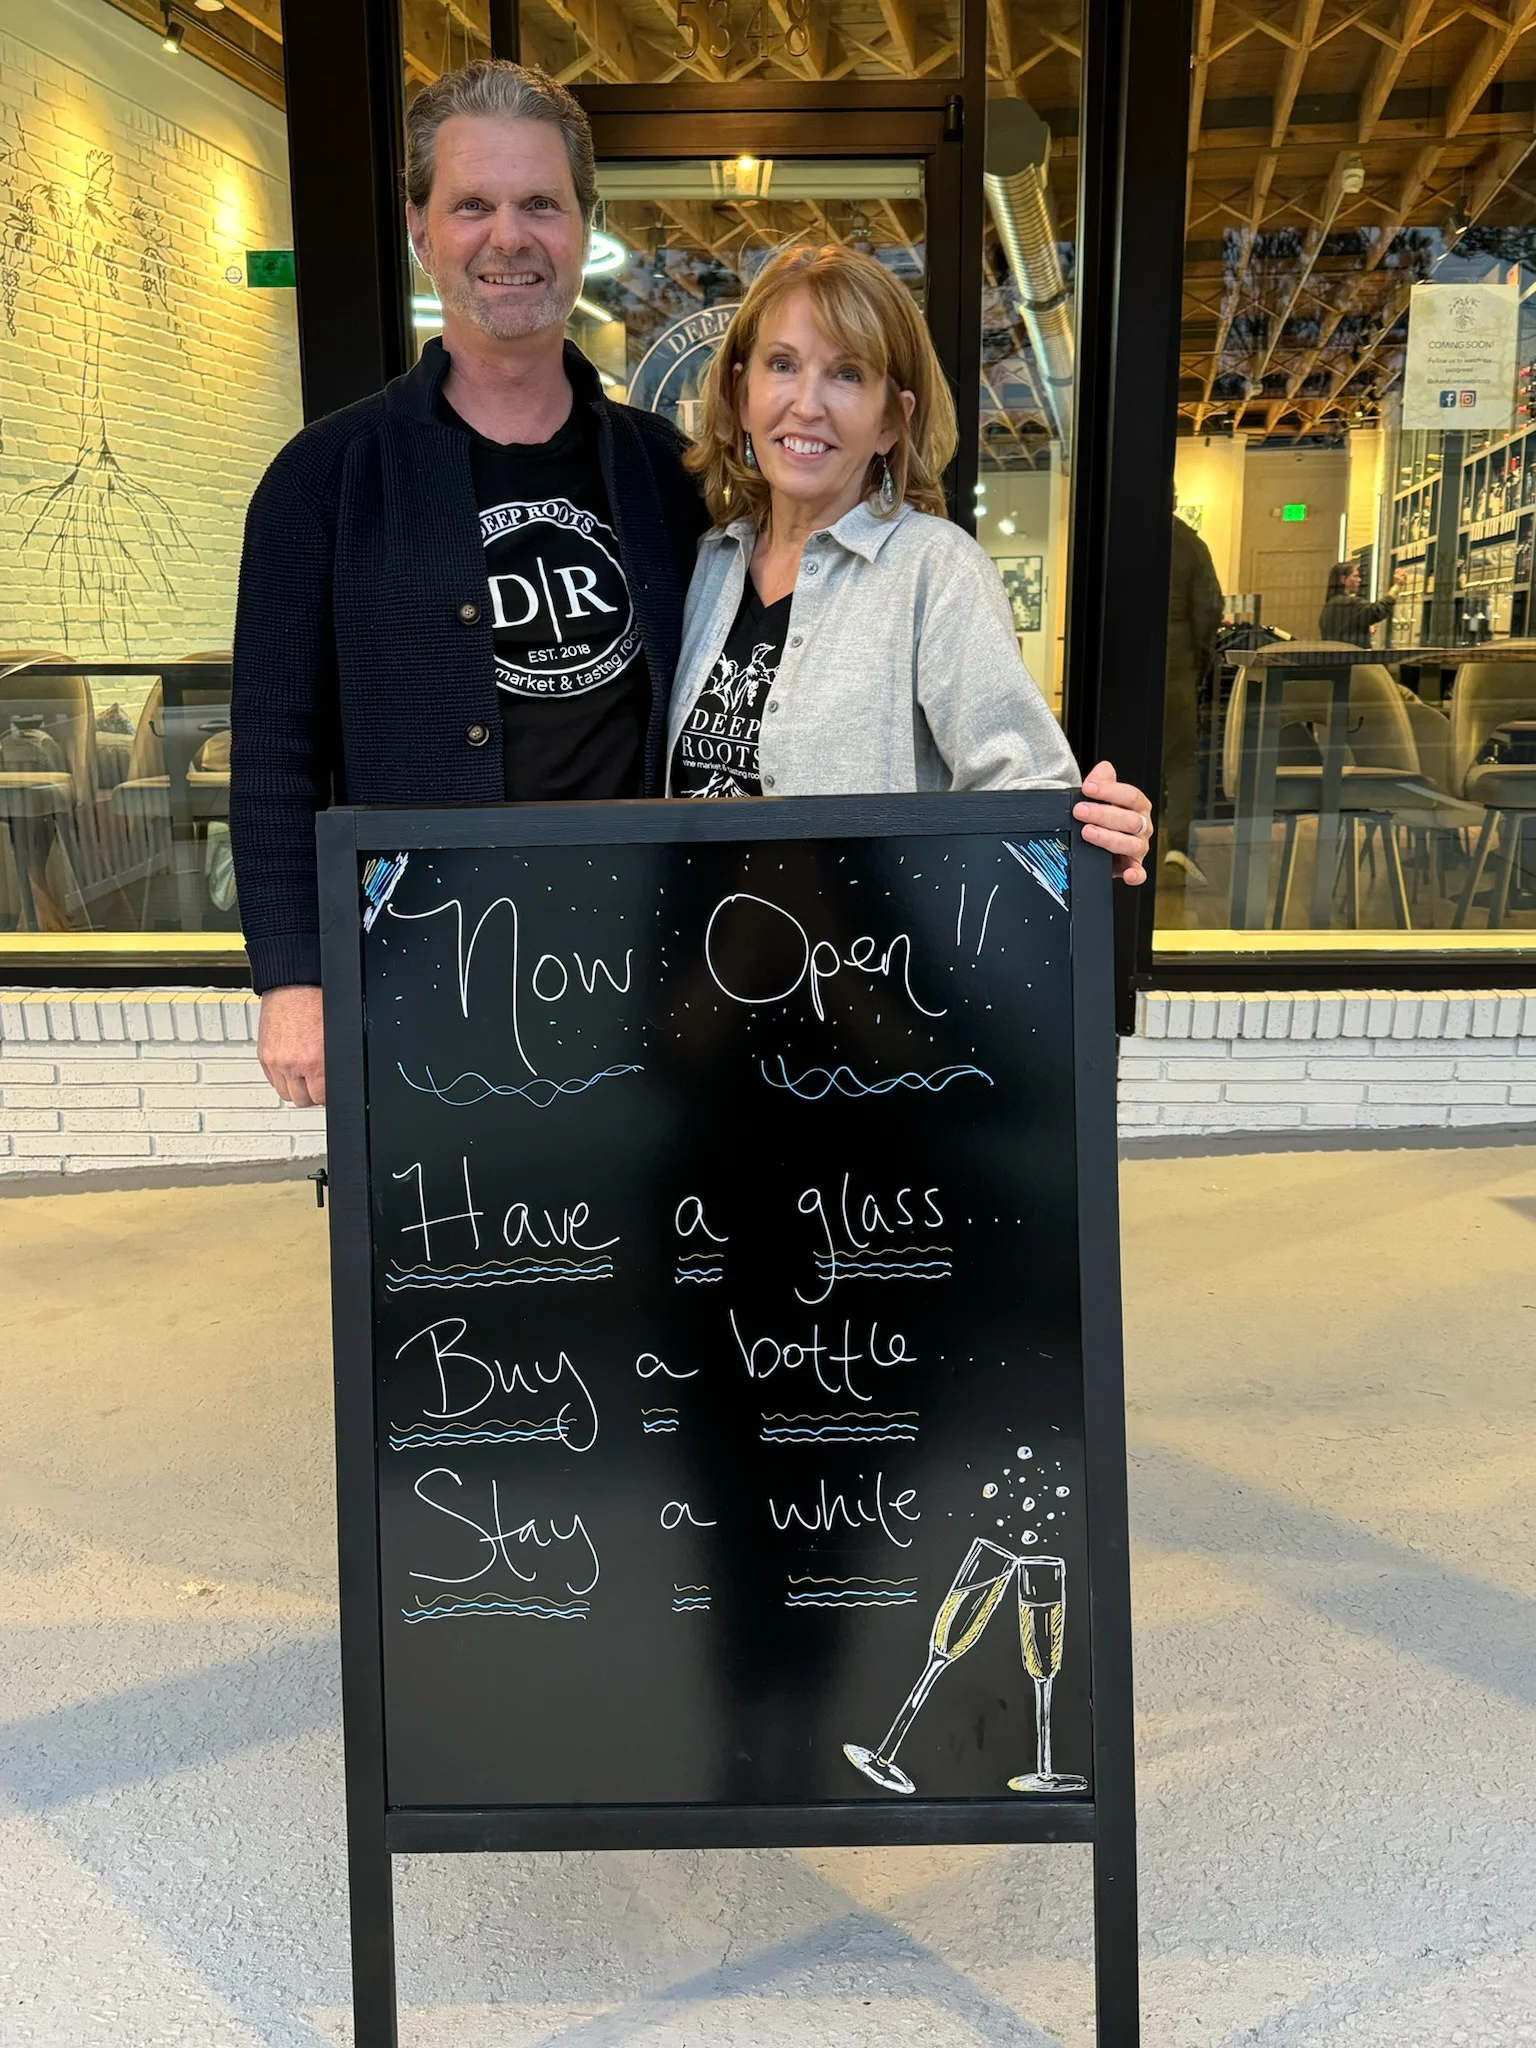 5348
DEEP
DEEP ROOTS
D|R
EST. 2018
market & tasting roo
DEEP
ROOTS
vine market & tasting roo
COMING SOON!
Follow us to watch our
progress!
Now Open!!
Have a glass...
Buy a bottle...
Stay a while...